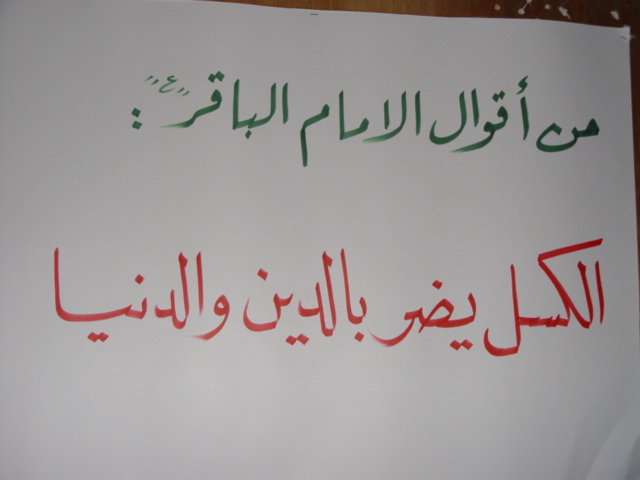 من أقوال الامام الباقر "ع" :
الكسل يضر بالدين والدنيا